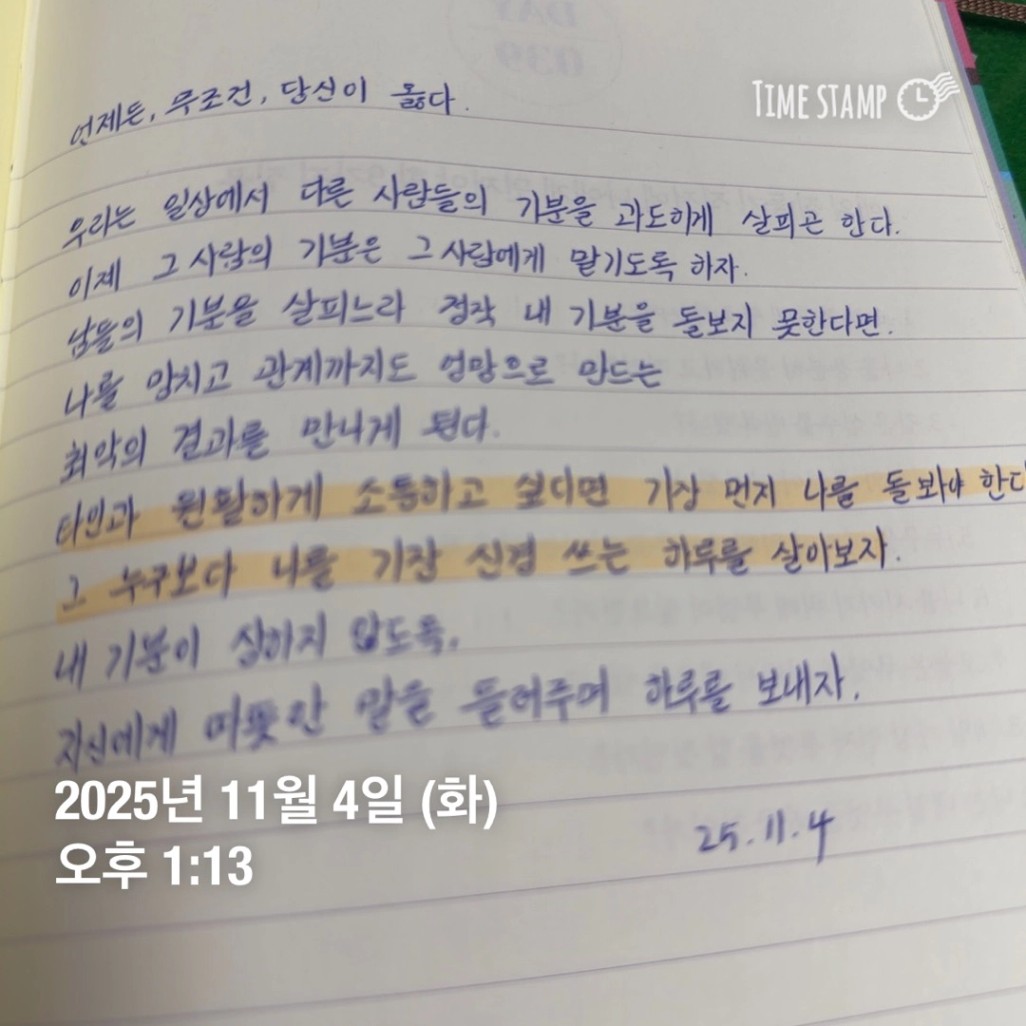 TIME STAMP
언제든, 무조건, 당신이 옳다.
우리는 일상에서 다른 사람들의 기분을 과도하게 살피곤 한다.
이제 그 사람의 기분은 그 사람에게 맡기도록 하자.
남들의 기분을 살피느라 정작 내 기분을 돌보지 못한다면.
나를 망치고 관계까지도 엉망으로 만드는
최악의 결과를 만나게 된다.
타인과 원활하게 소통하고 싶다면 가장 먼저 나를 돌봐야 한다
그 누구보다 나를 가장 신경 쓰는 하루를 살아보자.
내 기분이 상하지 않도록.
자신에게 따뜻한 말을 들려주며 하루를 보내자.
25.11.4
2025년 11월 4일 (화)
오후 1:13